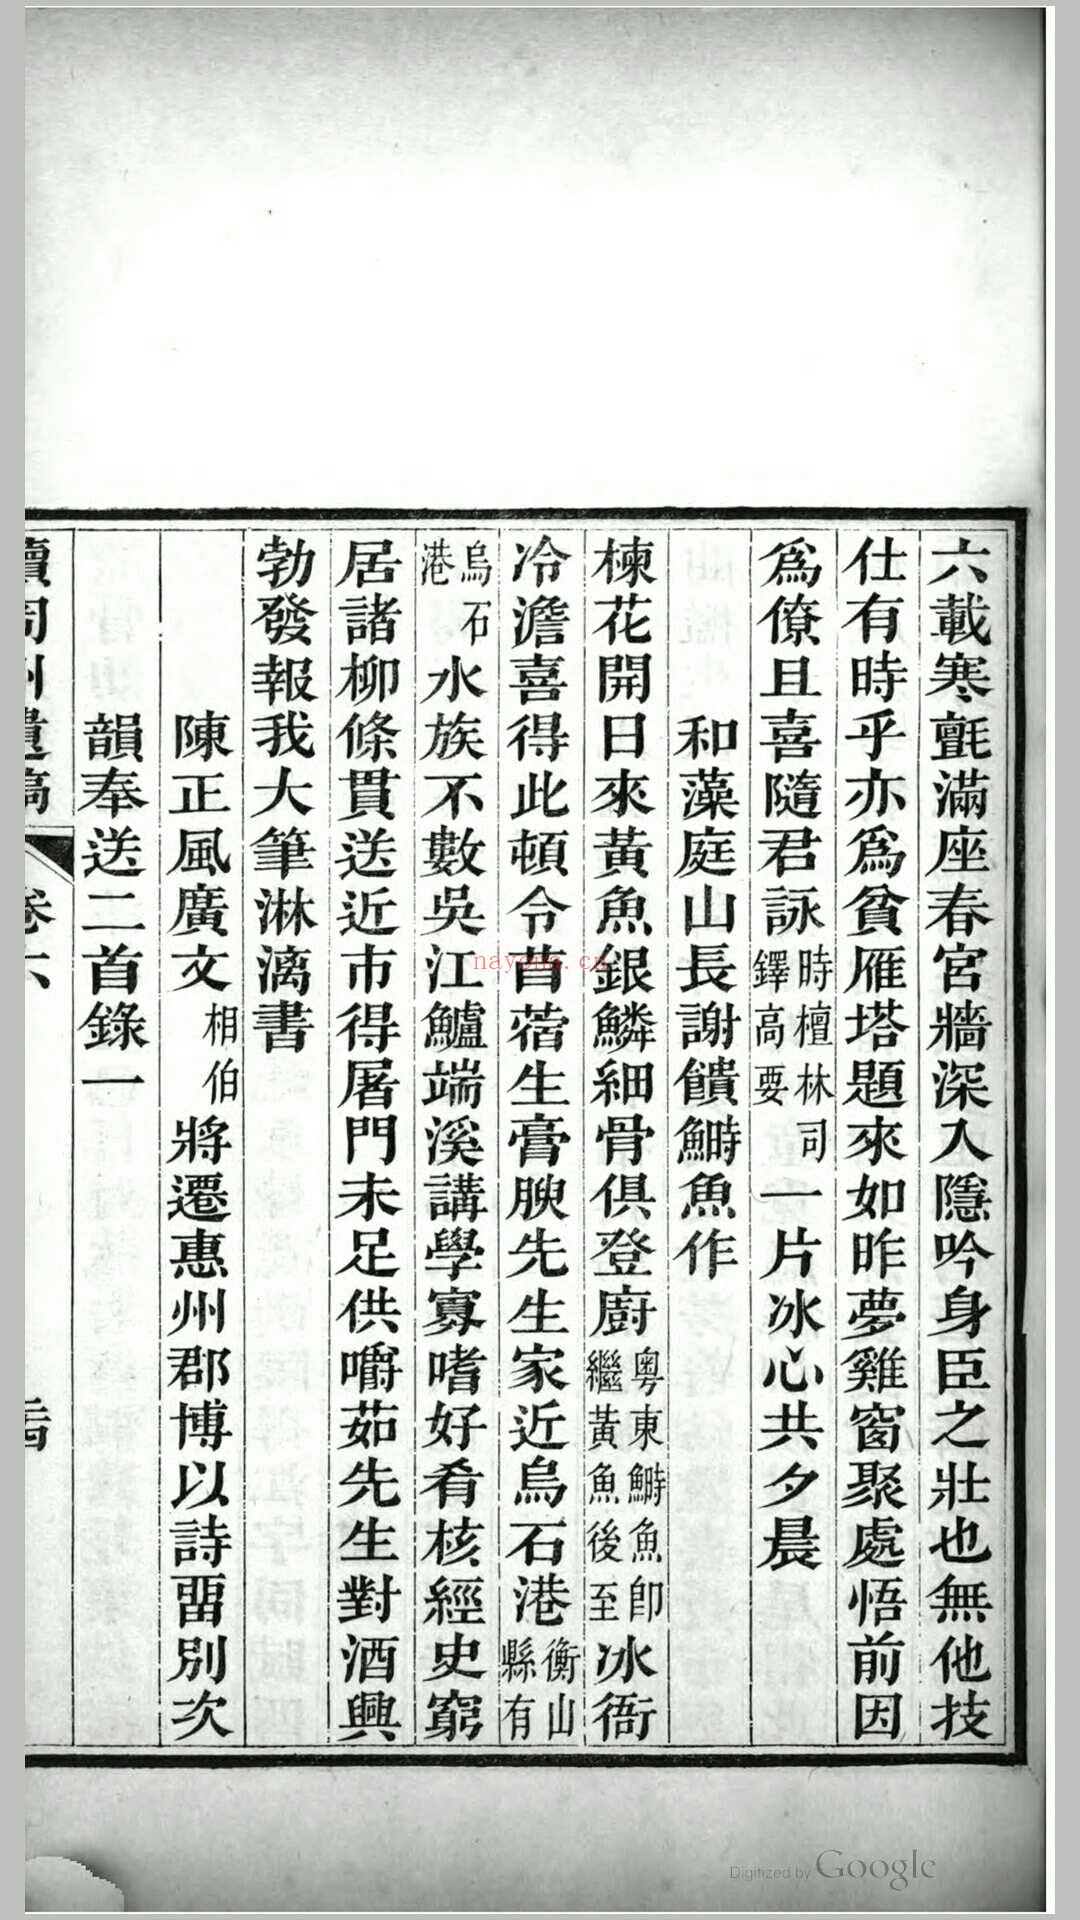 六載寒氈滿座春宮牆深入隱吟身臣之壯也無他技
仕有時乎亦爲貧雁塔題來如昨夢雞窗聚處悟前因
爲僚且喜隨君詠時檀林司鐸高要一片冰心共夕晨
和藻庭山長謝饋鰣魚作
楝花開日來黃魚銀鱗細骨俱登廚粤東鰣魚卽繼黃魚後至冰衙
冷澹喜得此頓令苜蓿生膏腴先生家近烏石港衡山縣有
烏石港水族不數吳江鱸端溪講學寡嗜好肴核經史窮
居諸柳條貫送近市得屠門未足供嚼茹先生對酒興
勃發報我大筆淋漓書
陳正風廣文相伯將遷惠州郡博以詩畱別次
韻奉送二首錄一
卷六
nayona.cn
Digitized by Google